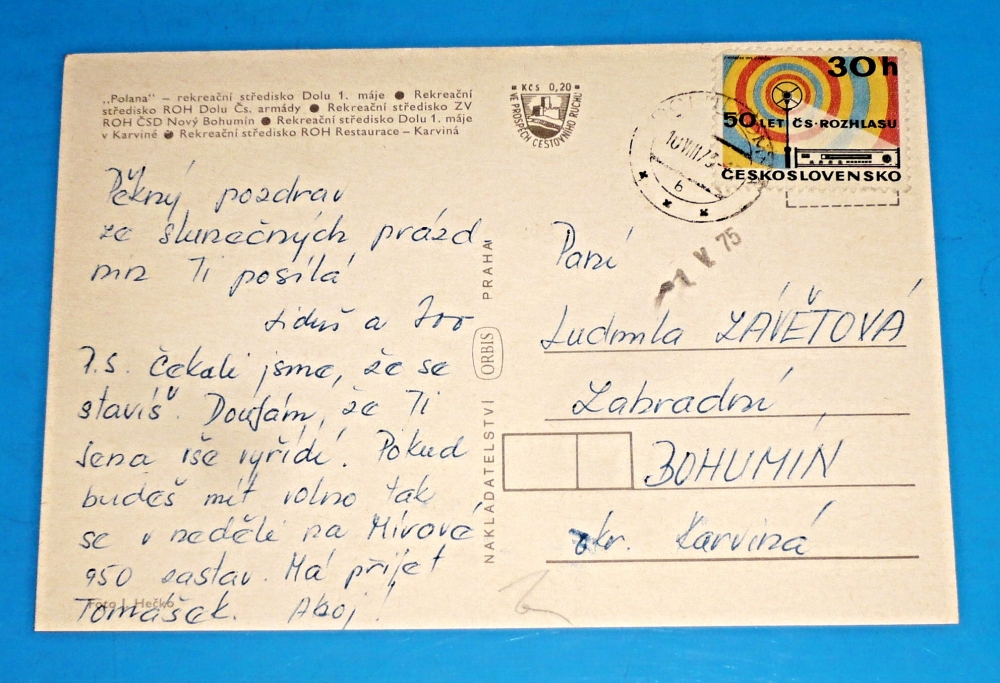 „Polana" – rekreační středisko Dolu 1. máje ● Rekreační
středisko ROH Dolu Čs. armády ● Rekreační středisko ZV
ROH ČSD Nový Bohumín ● Rekreační středisko Dolu 1. máje
v Karviné ● Rekreační středisko ROH Restaurace – Karviná
Kčs 0,20
VE PROSPĚCH CESTOVNÍHO RUCHU
30 h
50 LET ČS. ROZHLASU
ČESKOSLOVENSKO
10.VIII.73
6
1 V. 75
Pěkný pozdrav
ze slunečných prázd
nin Ti posílá
Liduš a
P.S. Čekali jsme, že se
stavíš. Doufám, že Ti
Jena vše vyřídí. Pokud
budeš mít volno tak
se v neděli na Mírové
950 zastav. Má přijet
Tomášek. Ahoj!
Foto J. Hečko
NAKLADATELSTVÍ ORBIS PRAHA
Paní
Ludmila ZÁVĚTOVÁ
Zahradní
BOHUMÍN
okr. Karviná